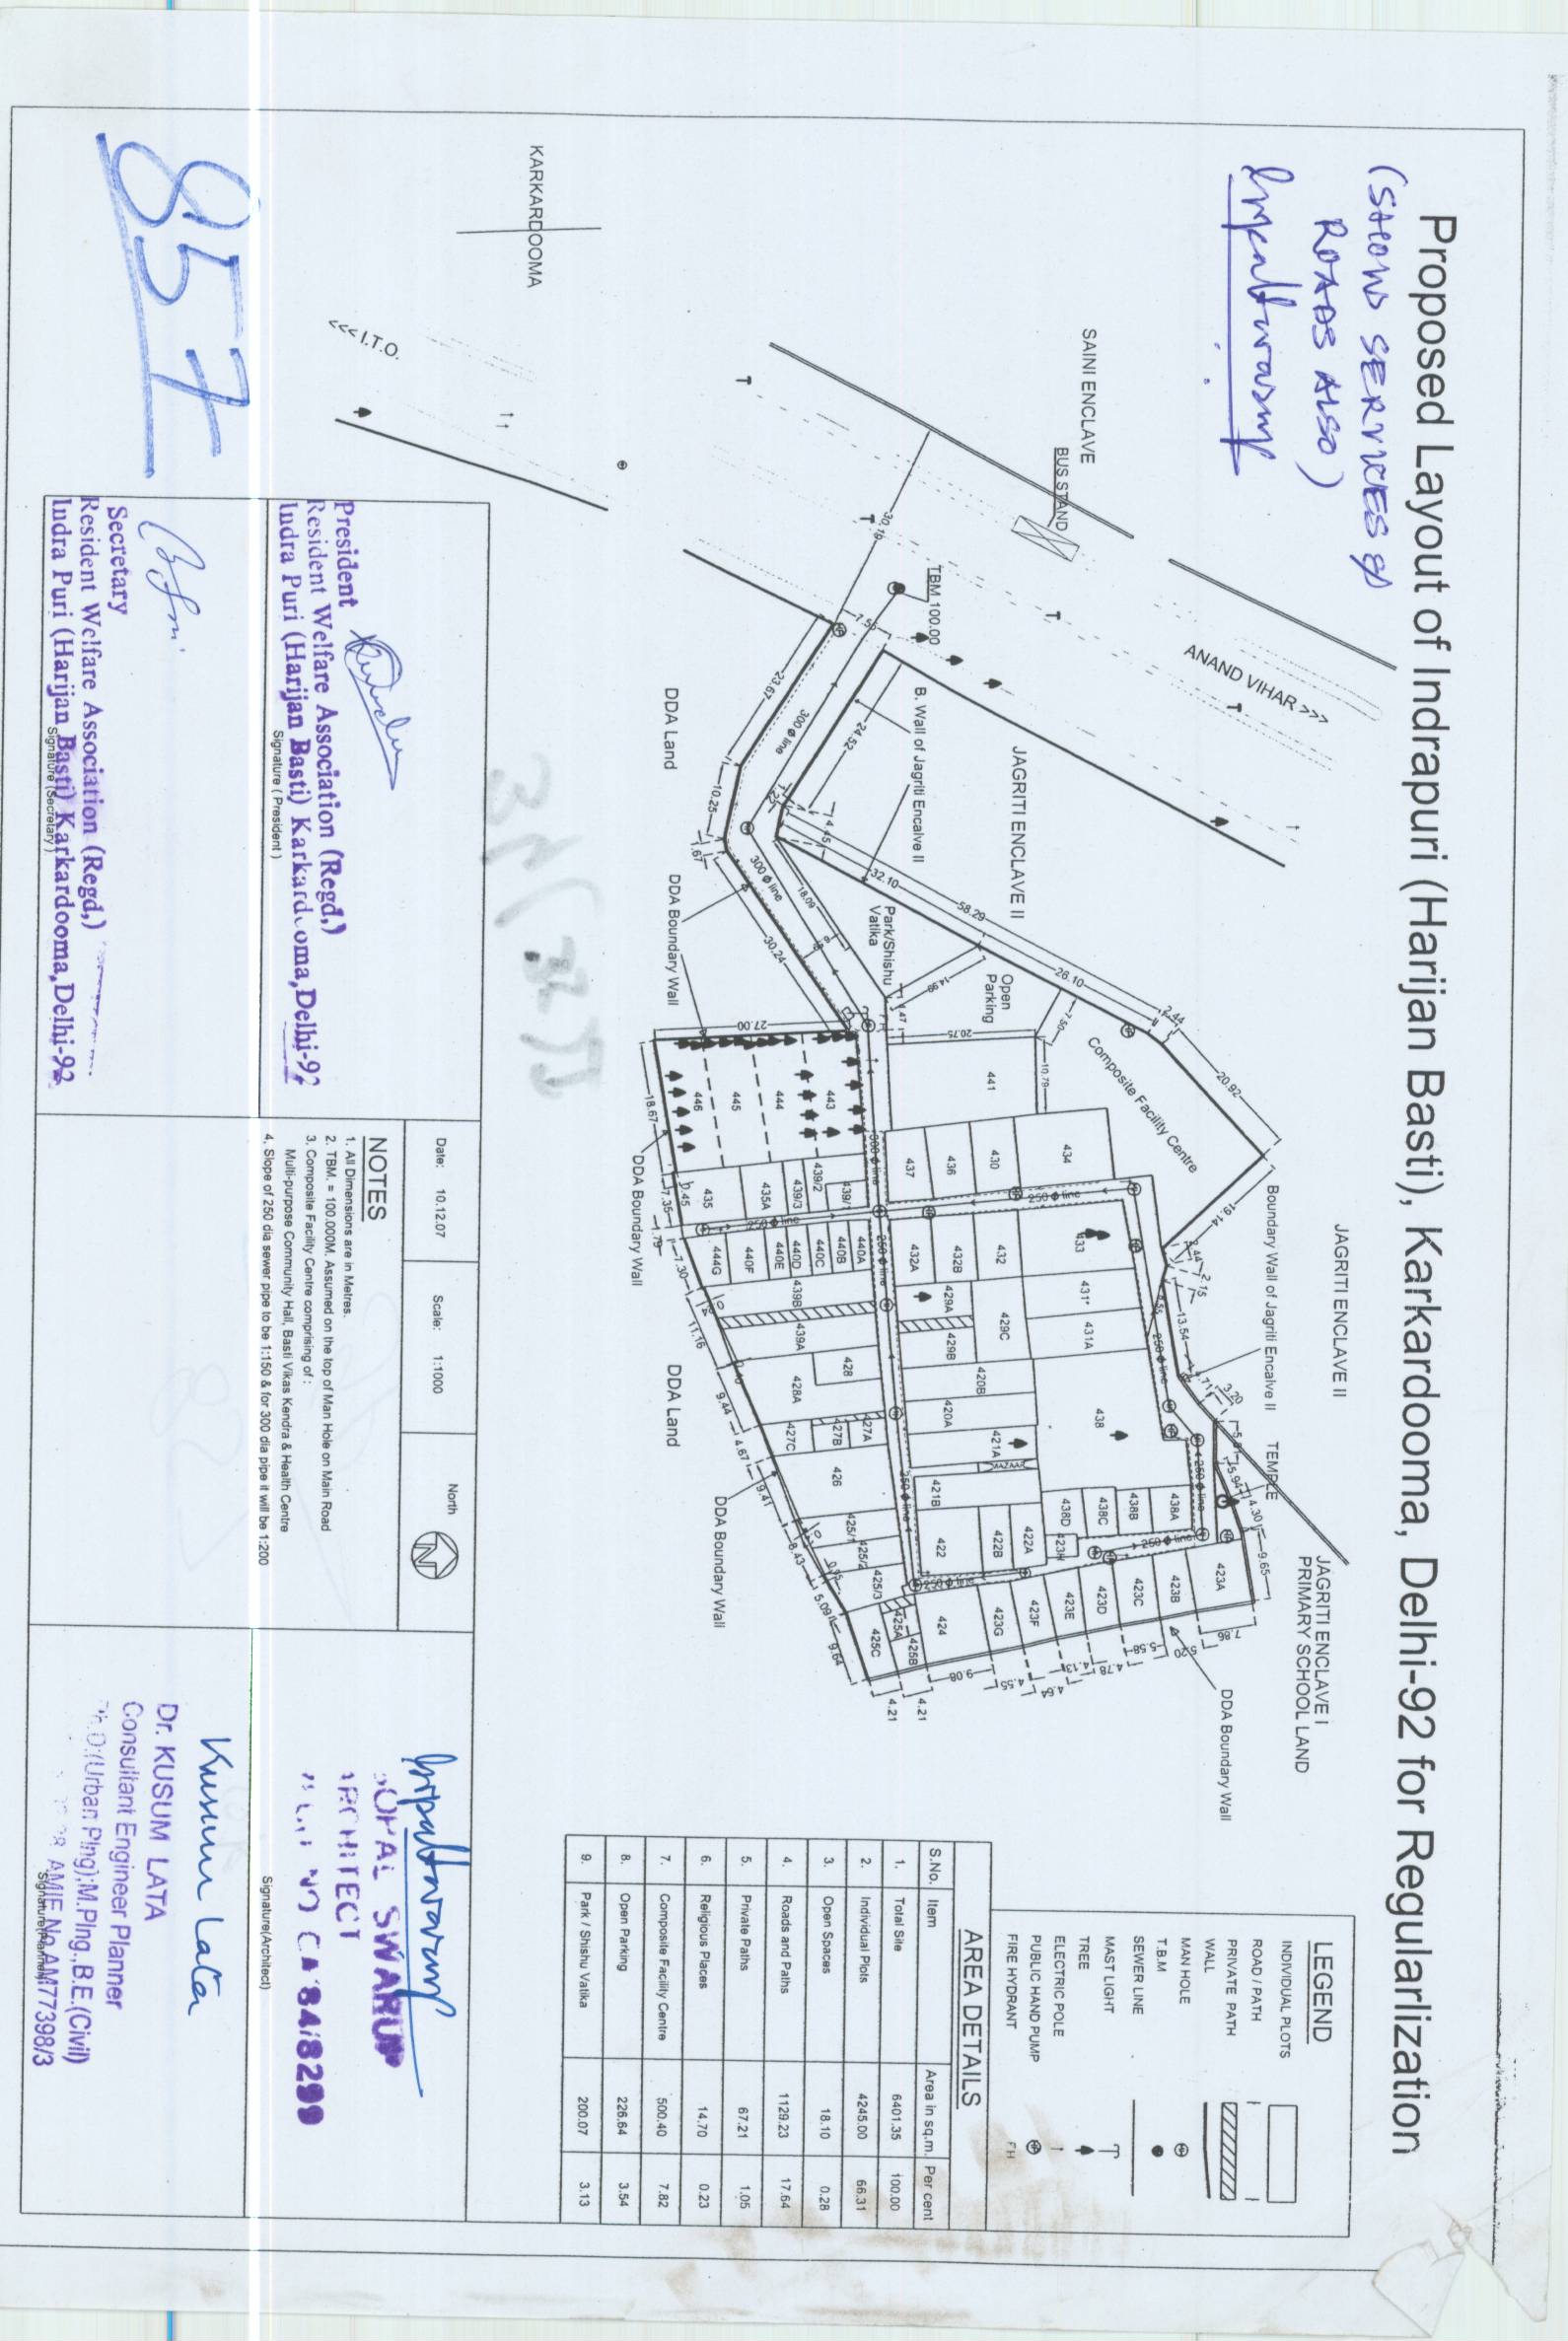 Proposed Layout of Indrapuri (Harijan Basti), Karkardooma, Delhi-92 for Regularlization
(SHOWS SERVICES &
ROADS ALSO)
SAINI ENCLAVE
BUS STAND
KARKARDOOMA
<<< I.T.O.
ANAND VIHAR >>>
TBM 100.00
30.18
7.55
JAGRITI ENCLAVE II
B. Wall of Jagriti Encalve II
24.53
23.67
300 ϕ line
DDA Land
10.25
1.67
4.45
300 ϕ line
18.09
30.24
DDA Boundary Wall
32.10
58.29
26.10
2.44
Park/Shishu
Vatika
14.99
Open
Parking
7.65
1.47
20.75
10.79
27.00
Composite Facility Centre
20.92
19.14
JAGRITI ENCLAVE II
Boundary Wall of Jagriti Encalve II
2.44
2.15
13.54
1.71
3.20
TEMPLE
5.94
4.30
9.65
JAGRITI ENCLAVE I
PRIMARY SCHOOL LAND
DDA Boundary Wall
441
434
430
436
437
443
444
445
446
439/1
439/2
439/3
435A
435
433
432
432B
432A
440A
440B
440C
440D
440E
440F
444G
431*
431A
429A
429B
429C
439B
439A
428
428A
420B
420A
427A
427B
427C
438
421A
421B
426
438A
438B
438C
438D
423H
422A
422B
422
425/1
425/2
425/3
423A
423B
423C
423D
423E
423F
423G
424
425A
425B
425C
300 ϕ line
250 ϕ line
250 ϕ line
250 ϕ line
250 ϕ line
250 ϕ line
250 ϕ line
250 ϕ line
250 ϕ line
18.67
0.45
7.35
1.79
7.30
11.16
9.44
4.67
9.41
8.43
5.09
9.64
4.21
4.21
9.08
4.55
4.64
4.13
4.78
5.58
5.20
7.86
DDA Boundary Wall
DDA Land
DDA Boundary Wall
LEGEND
INDIVIDUAL PLOTS
ROAD / PATH
PRIVATE PATH
WALL
MAN HOLE
T.B.M
SEWER LINE
MAST LIGHT
TREE
ELECTRIC POLE
PUBLIC HAND PUMP
FIRE HYDRANT FH
AREA DETAILS
S.No. Item Area in sq.m. Per cent
1. Total Site 6401.35 100.00
2. Individual Plots 4245.00 66.31
3. Open Spaces 18.10 0.28
4. Roads and Paths 1129.23 17.64
5. Private Paths 67.21 1.05
6. Religious Places 14.70 0.23
7. Composite Facility Centre 500.40 7.82
8. Open Parking 226.64 3.54
9. Park / Shishu Vatika 200.07 3.13
857
President
Resident Welfare Association (Regd,)
Indra Puri (Harijan Basti) Karkardooma, Delhi-92
Signature ( President )
Secretary
Resident Welfare Association (Regd,)
Indra Puri (Harijan Basti) Karkardooma, Delhi-92
Signature (Secretary)
Date: 10.12.07
Scale: 1:1000
North
N
NOTES
1. All Dimensions are in Metres.
2. TBM. = 100.000M. Assumed on the top of Man Hole on Main Road
3. Composite Facility Centre comprising of :
Multi-purpose Community Hall, Basti Vikas Kendra & Health Centre
4. Slope of 250 dia sewer pipe to be 1:150 & for 300 dia pipe it will be 1:200
SWARUP
ARCHITECT
NO CA 84/8299
Signature(Architect)
Kusum Lata
Dr. KUSUM LATA
Consultant Engineer Planner
Ph.D.(Urban Plng);M.Plng.,B.E.(Civil)
AMIE No.AM77398/3
Signature(Planner)